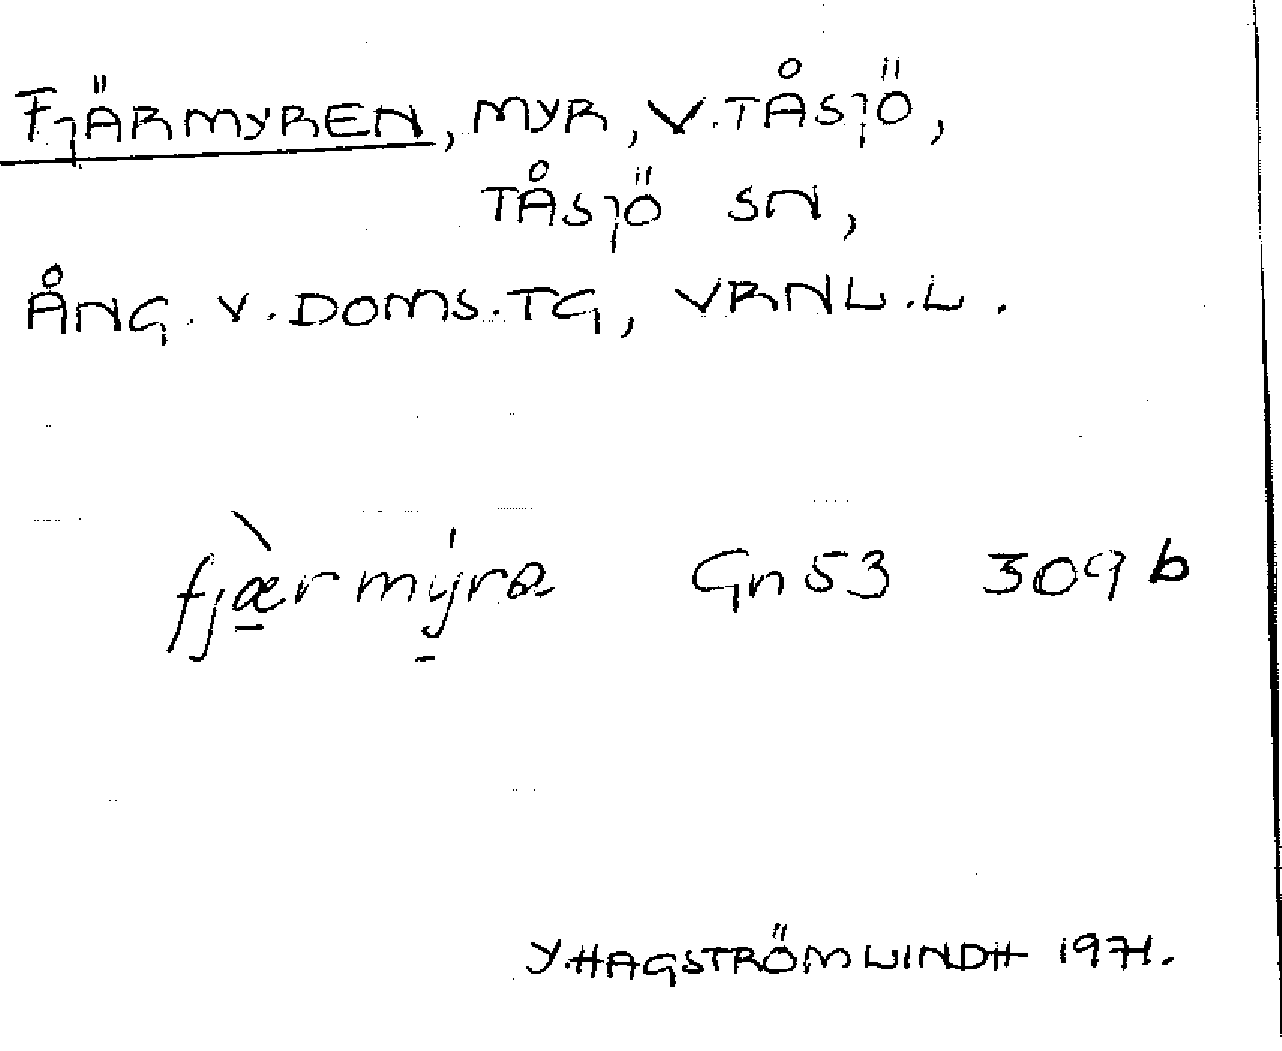 FJÄRMYREN, MYR, V. TÅSJÖ,
TÅSJÖ SN,
ÅNG. V. DOMS. TG, VRNL. L.
fjæ̠̀rmy̠̍ra Gn 53 309 b
Y. HAGSTRÖM LINDH 1971.